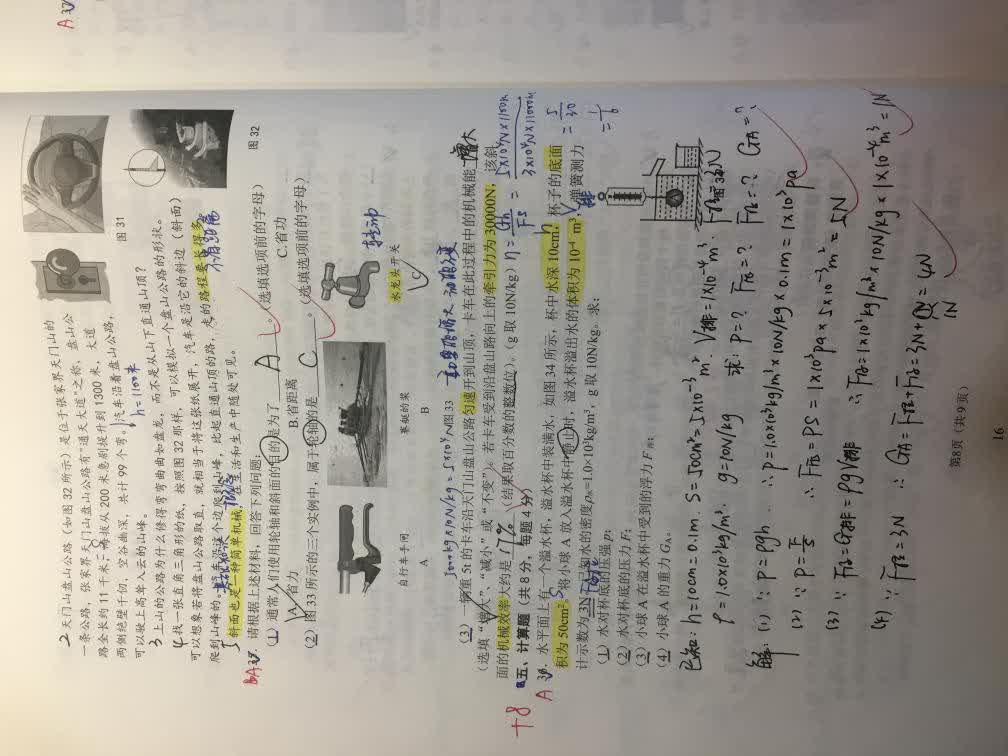 图 31
图 32
2 天门山盘山公路(如图 32 所示)是位于张家界天门山的
一条公路,张家界天门山盘山公路有“通天大道”之称,盘山公
路全长约 11 千米,海拔从 200 米急剧提升到 1300 米,大道
两侧绝壁千仞,空谷幽深,共计 99 个弯,汽车沿着盘山公路,
可以驶上高耸入云的山峰。
h=1100米
3 上山的公路为什么修得弯弯曲曲如盘龙,而不是从山下直通山顶?
4 找一张直角三角形的纸,按照图 32 那样,可以模拟一个盘山公路的形状。
可以想象若将盘山公路取直,就相当于将这张纸展开,汽车是沿它的斜边(斜面)
爬到山峰的。
爬到山峰,比起直通山顶的路,走的路程要长得多。
斜面也是一种简单机械,在生活和生产中随处可见。
不省距离
请根据上述材料,回答下列问题:
(1)通常人们使用轮轴和斜面的目的是为了 A 。(选填选项前的字母)
A. 省力 B. 省距离 C. 省功
(2)图 33 所示的三个实例中,属于轮轴的是 C 。(选填选项前的字母)
自行车手闸 赛艇的桨 水龙头开关
A B C
图 33
(3)一辆重 5t 的卡车沿天门山盘山公路匀速开到山顶,卡车在此过程中的机械能 增大
(选填“增大”、“减小”或“不变”)。若卡车受到沿盘山路向上的牵引力为 30000N,该斜
面的机械效率大约是 17% (结果取百分数的整数位)。(g 取 10N/kg)
五、计算题(共 8 分,每题 4 分)
水平面上有一个溢水杯,溢水杯中装满水,如图 34 所示,杯中水深 10cm,杯子的底面
积为 50cm²,将小球 A 放入溢水杯中静止时,溢水杯溢出水的体积为 10⁻⁴ m³,弹簧测力
计示数为 3N,已知水的密度 ρ水=1.0×10³kg/m³,g 取 10N/kg。求:
(1)水对杯底的压强 p;
(2)水对杯底的压力 F;
(3)小球 A 在溢水杯中受到的浮力 F浮;
(4)小球 A 的重力 GA。
已知: h=10cm=0.1m. S=50cm²=5×10⁻³m². V排=1×10⁻⁴m³.
ρ=1.0×10³kg/m³. g=10N/kg 求: P=? F压=? F浮=? GA=?
解: (1) ∵ P=ρgh ∴ P=1.0×10³kg/m³×10N/kg×0.1m=1×10³pa
(2) ∵ P=F/S ∴ F压=PS=1×10³pa×5×10⁻³m²=5N
(3) ∵ F浮=G排=ρgV排 ∴ F浮=1×10³kg/m³×10N/kg×1×10⁻⁴m³=1N
(4) ∵ F拉=3N ∴ GA=F拉+F浮=3N+1N=4N
第8页(共9页)
16
+8